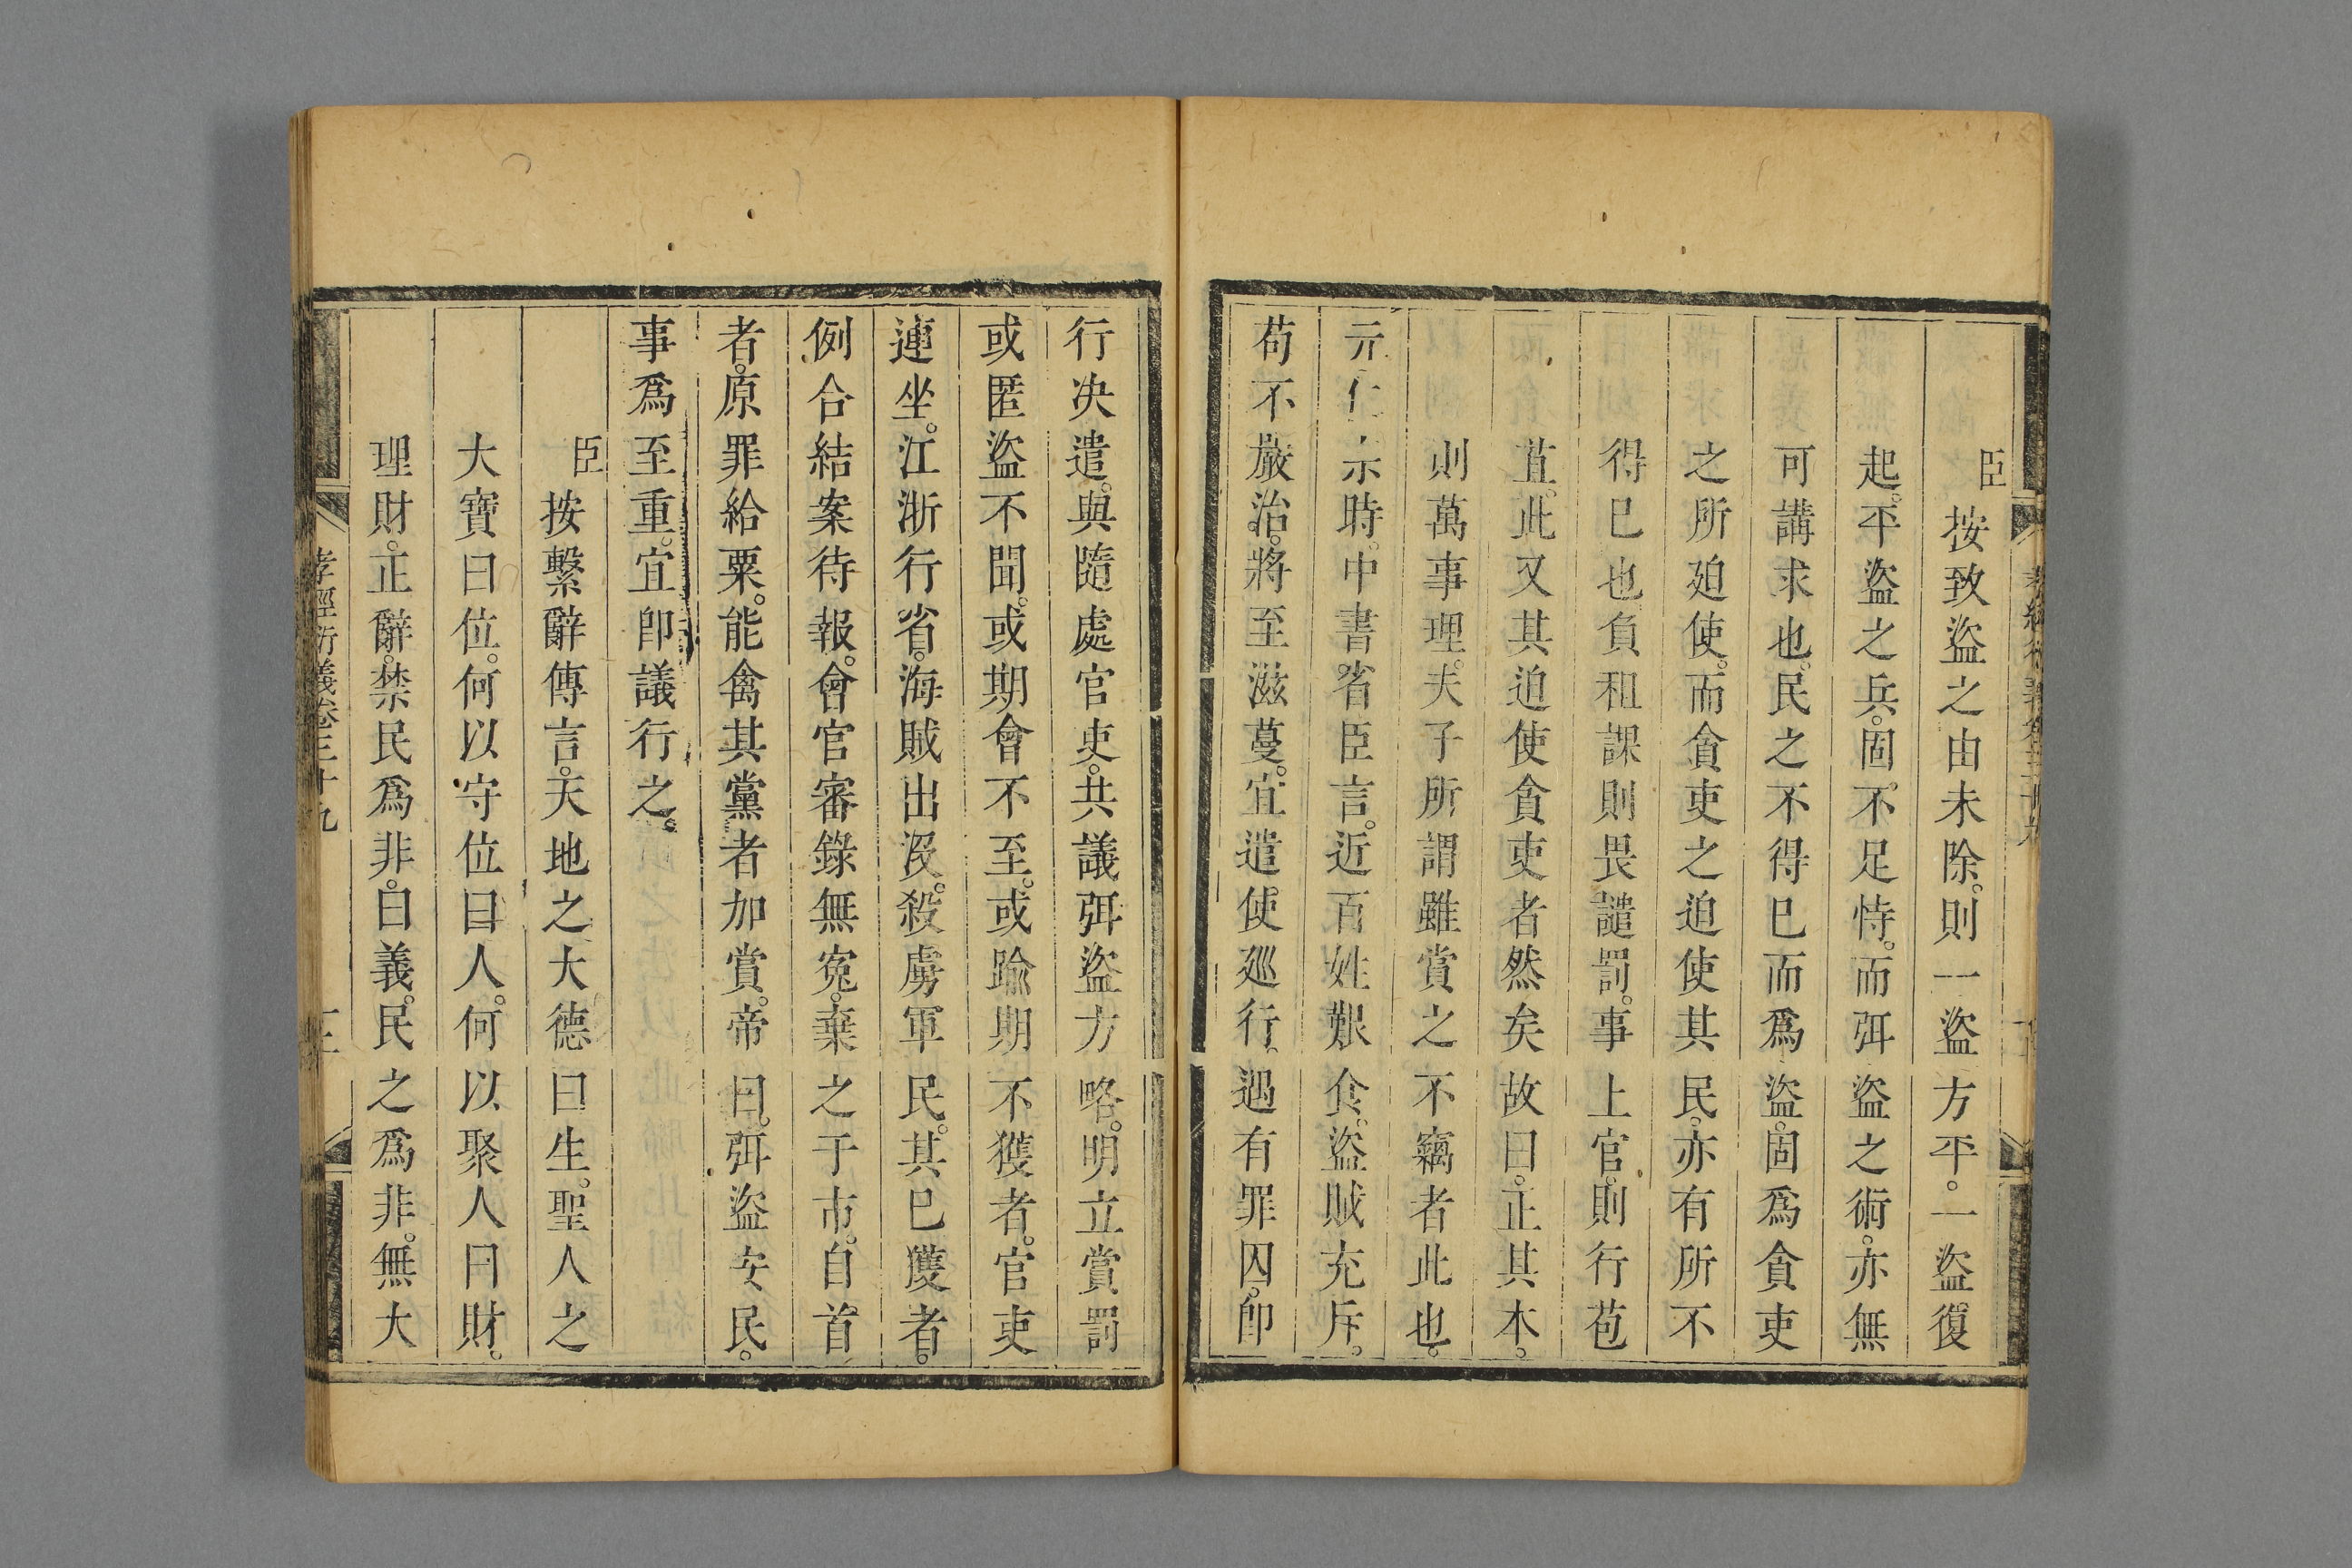 臣按致盜之由未除。則一盜方平。一盜復
起。平盜之兵。固不足恃。而弭盜之術。亦無
可講求也。民之不得已而爲盜。固爲貪吏
之所廹使。而貪吏之迫使其民。亦有所不
得已也負租課則畏譴罰。事上官。則行苞
苴。此又其迫使貪吏者然矣故曰。正其本。
則萬事理。夫子所謂雖賞之不竊者此也。
元仁宗時。中書省臣言。近百姓艱食。盜賊充斥。
苟不嚴治。將至滋蔓。宜遣使廵行。遇有罪囚。卽
行決遣。與隨處官吏。共議弭盜方略。明立賞罰
或匿盜不聞。或期會不至。或踰期不獲者。官吏
連坐。江浙行省。海賊出沒。殺虜軍民。其已獲者。
例合結案待報。會官審錄無寃。棄之于市。自首
者。原罪給粟。能禽其黨者加賞。帝曰。弭盜安民。
事爲至重。宜卽議行之。
臣按繫辭傳言。天地之大德曰生。聖人之
大寶曰位。何以守位曰人。何以聚人曰財。
理財。正辭。禁民爲非。曰義。民之爲非。無大
孝經衍義卷三十九